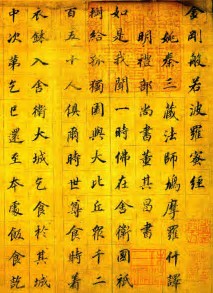 金剛般若波羅密經
姚秦三藏法師鳩摩羅什譯
明禮部尚書董其昌書
如是我聞一時佛在舍衛國祇
樹給孤獨園與大比丘眾千二
百五十人俱爾時世尊食時著
衣鉢入舍衛大城乞食於其城
中次第乞已還至本處飯食訖